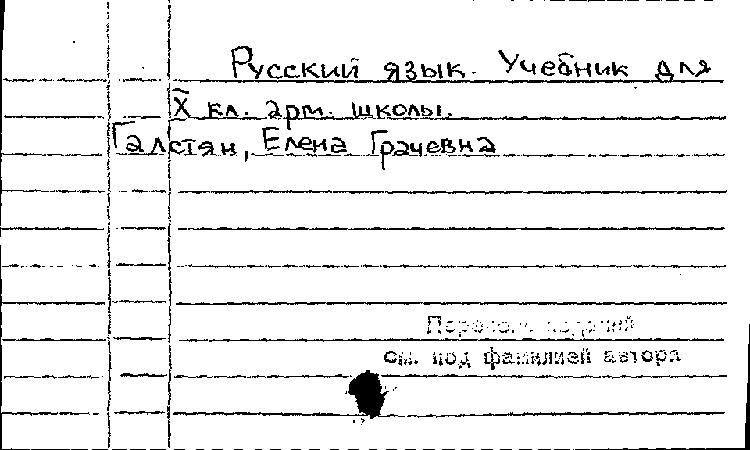 Русский язык. Учебник для
X кл. арм. школы.
Галстян, Елена Грачевна
Перечень изданий
см. под фамилией автора